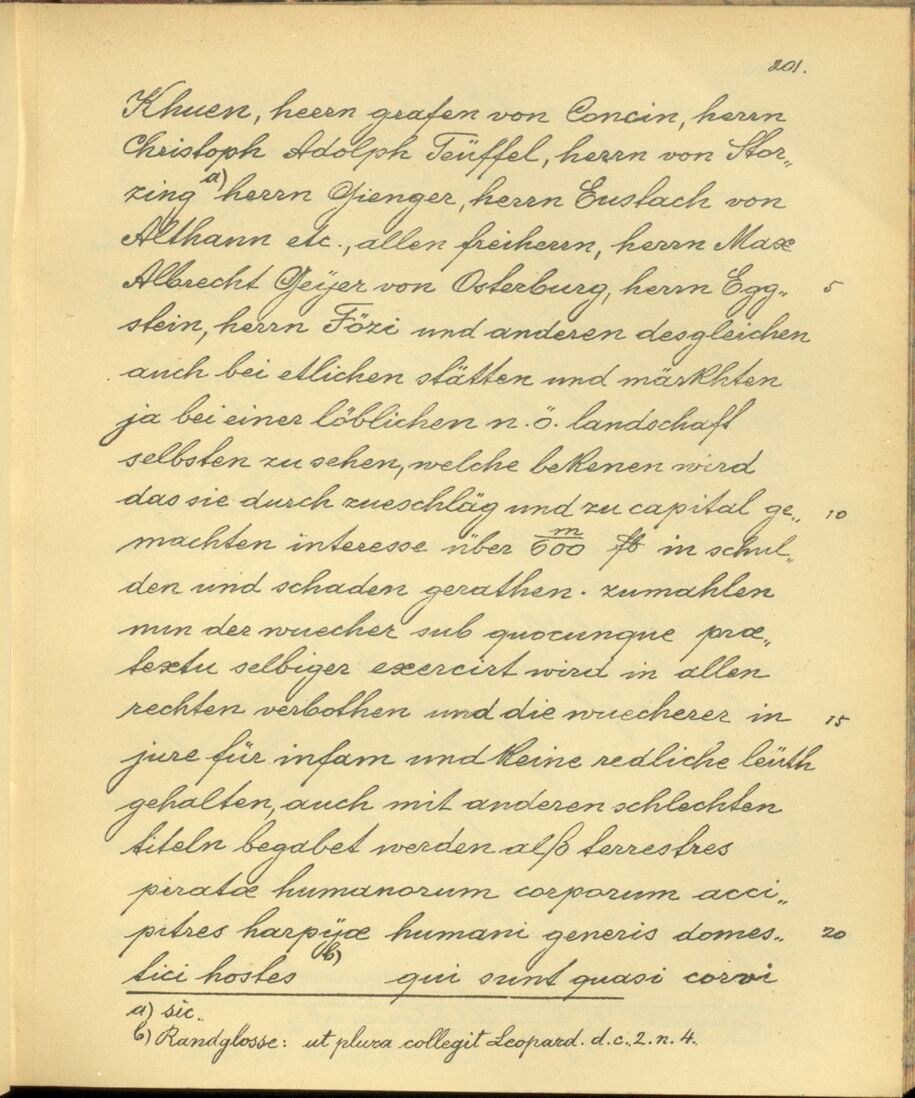 201.
Khuen, herrn grafen von Concin, herrn
Christoph Adolph Teüffel, herrn von Stor„
zing a) herrn Gienger, herrn Eustach von
Althann etc., allen freiherrn, herrn Max
Albrecht Geÿer von Osterburg, herrn Egg„ 5
stein, herrn Fözi und anderen desgleichen
auch bei etlichen stätten und märkhten
ja bei einer löblichen n. ö. landschaft
selbsten zu sehen, welche bekenen wird
das sie durch zueschläg und zu capital ge„ 10
machten interesse über m/600 fl in schul„
den und schaden gerathen. zumahlen
nun der wuecher sub quocunque præ„
textu selbiger exercirt wird in allen
rechten verbothen und die wuecherer in 15
jure für infam und keine redliche leüth
gehalten, auch mit anderen schlechten
titeln begabet werden alß terrestres
piratæ humanorum corporum acci„
pitres harpÿæ humani generis domes„ 20
tici hostes b) qui sunt quasi corvi
a) sic.
b) Randglosse: ut plura collegit Leopard. d. c. 2. n. 4.